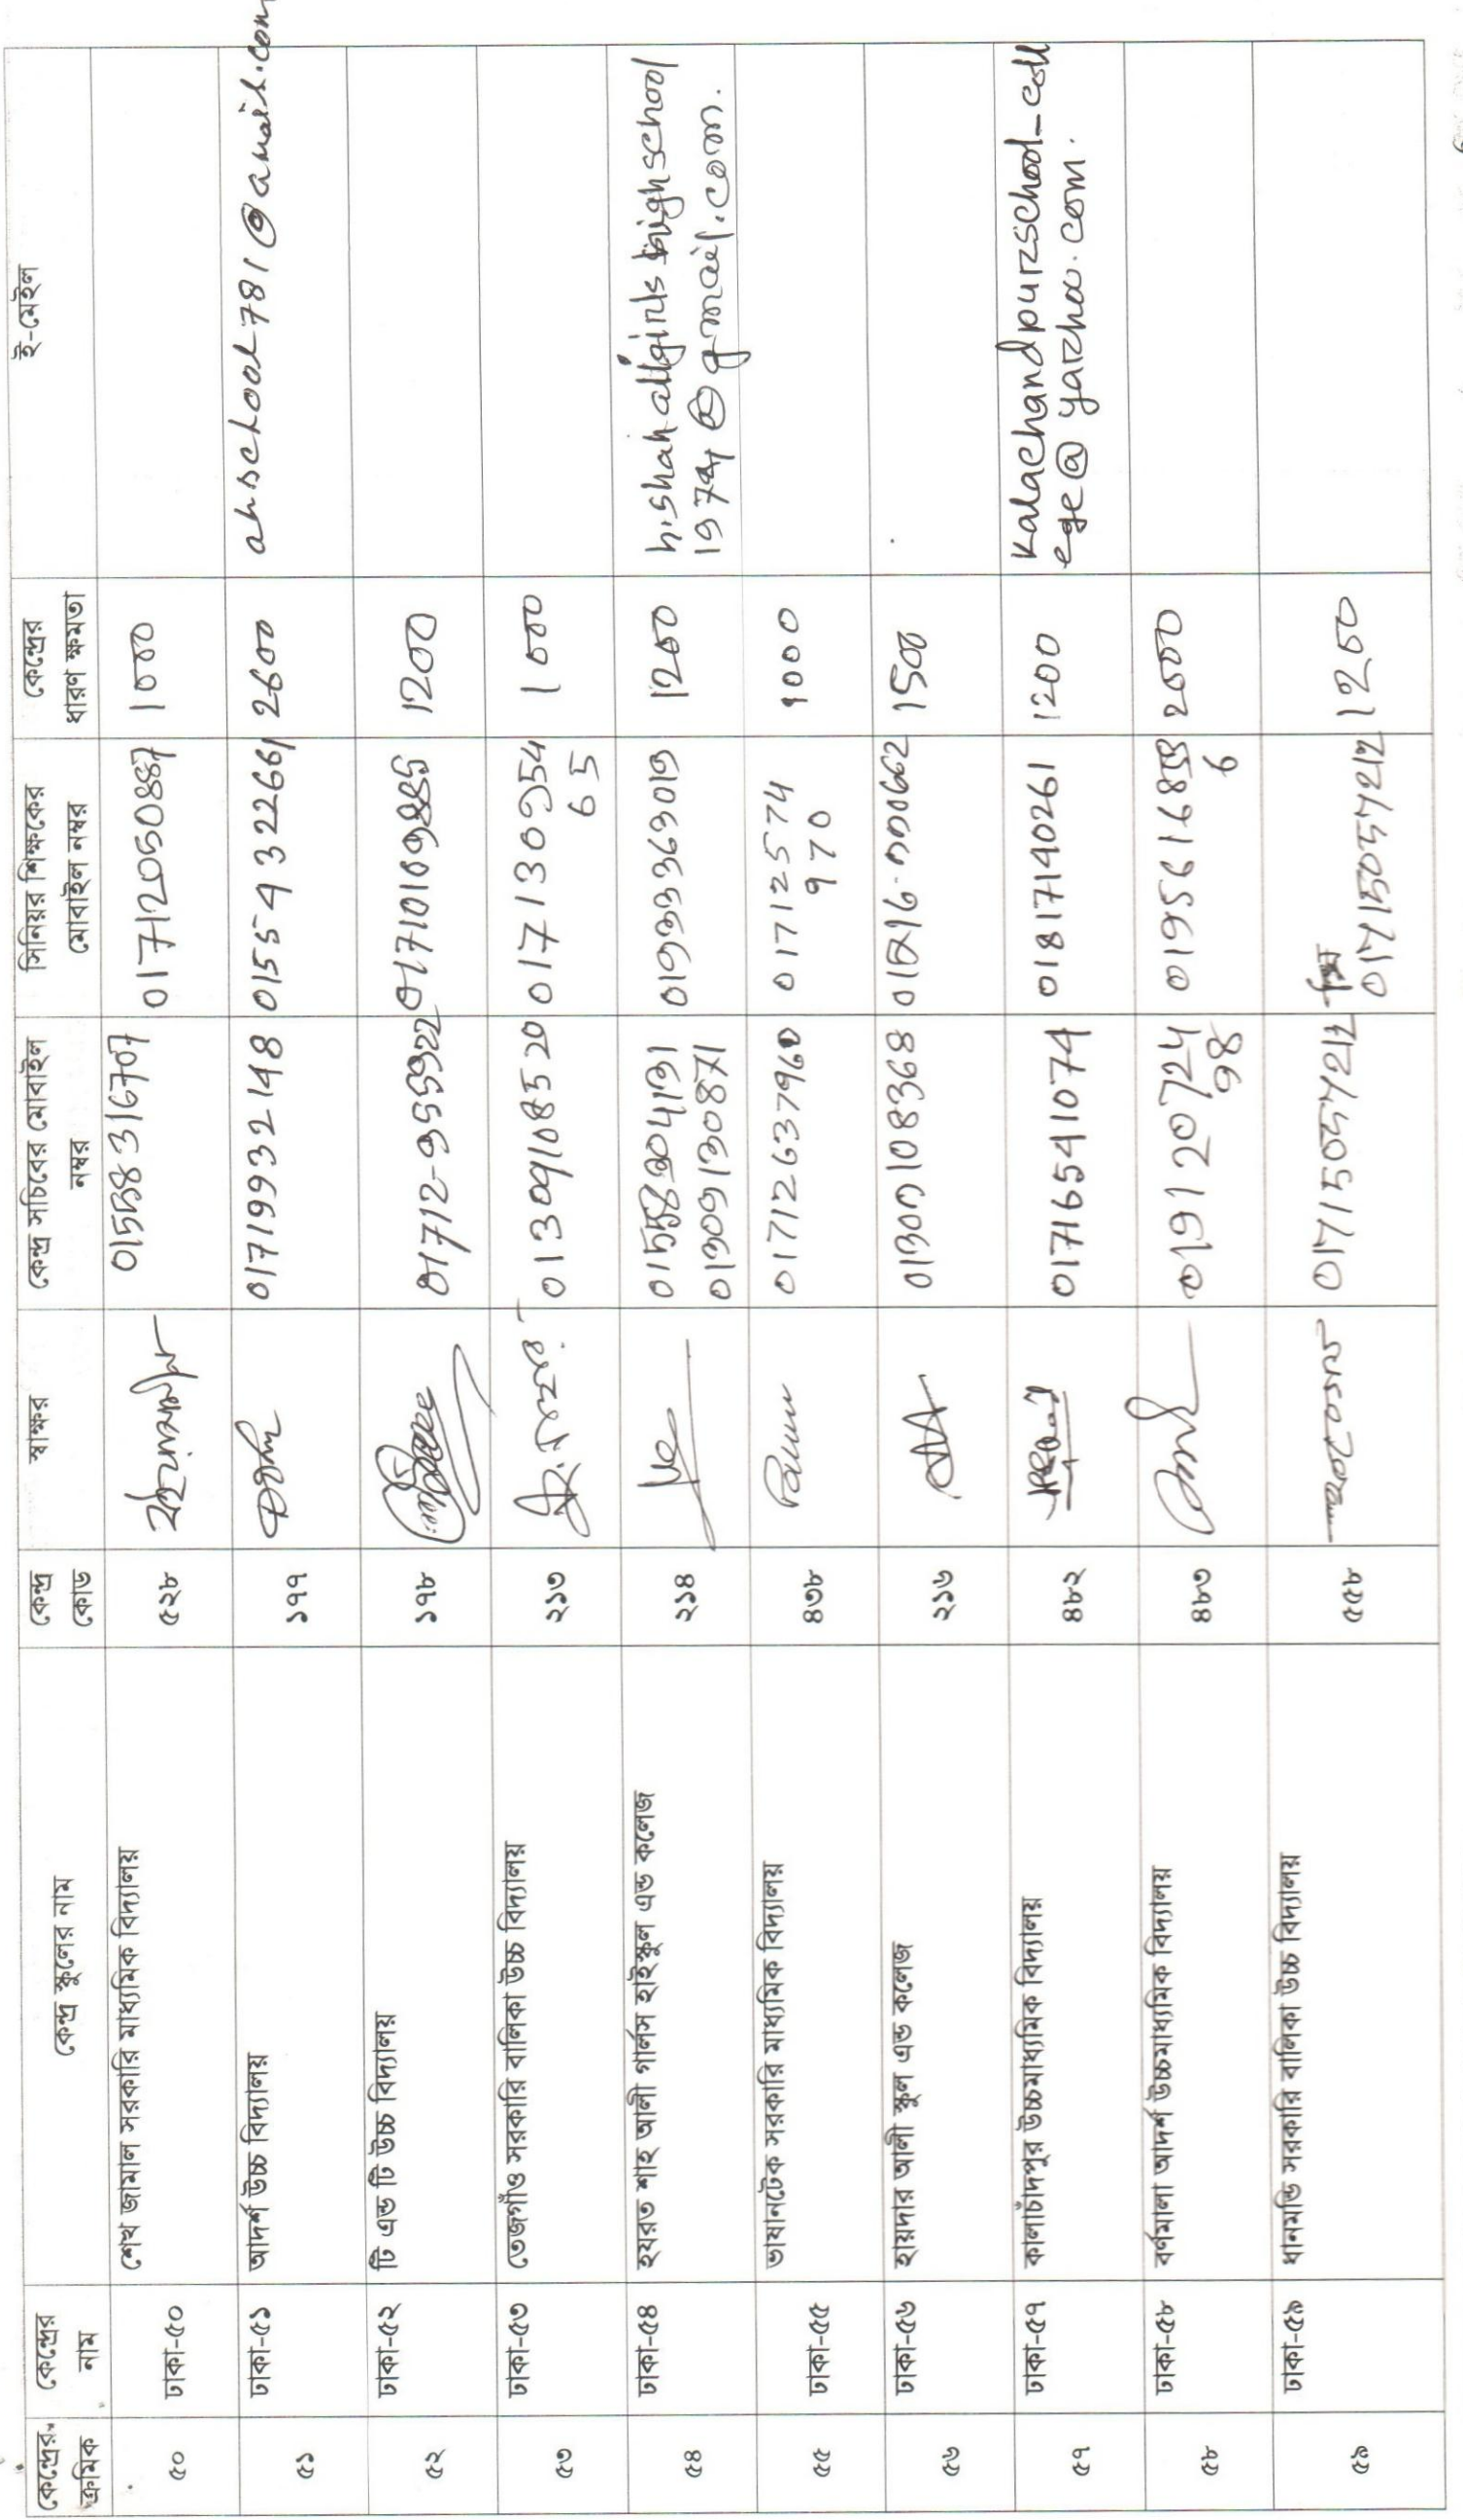 কেন্দ্রের ক্রমিক | কেন্দ্রের নাম | কেন্দ্র স্কুলের নাম | কেন্দ্র কোড | স্বাক্ষর | কেন্দ্র সচিবের মোবাইল নম্বর | সিনিয়র শিক্ষকের মোবাইল নম্বর | কেন্দ্রের ধারণ ক্ষমতা | ই-মেইল
৫০ | ঢাকা-৫০ | শেখ জামাল সরকারি মাধ্যমিক বিদ্যালয় | ৫২৮ | 01558316707 | 01712050887 | 1000
৫১ | ঢাকা-৫১ | আদর্শ উচ্চ বিদ্যালয় | ১৭৭ | 01719932148 | 01554322661 | 2600 | ahschool781@gmail.com
৫২ | ঢাকা-৫২ | টি এন্ড টি উচ্চ বিদ্যালয় | ১৭৮ | 1200
৫৩ | ঢাকা-৫৩ | তেজগাঁও সরকারি বালিকা উচ্চ বিদ্যালয় | ২১৩ | 01309108520 | 01713095465 | 1000
৫৪ | ঢাকা-৫৪ | হযরত শাহ আলী গার্লস হাইস্কুল এন্ড কলেজ | ২১৪ | 01309130871 | 01933363019 | 1200 | h.shahaligirlshighschool
1974@gmail.com.
৫৫ | ঢাকা-৫৫ | ভাষানটেক সরকারি মাধ্যমিক বিদ্যালয় | ৪৩৮ | 01712637960 | 01712574970 | 1000
৫৬ | ঢাকা-৫৬ | হায়দার আলী স্কুল এন্ড কলেজ | ২১৬ | 01309108368 | 1500
৫৭ | ঢাকা-৫৭ | কালাচাঁদপুর উচ্চমাধ্যমিক বিদ্যালয় | ৪৮২ | 01716541074 | 01817140261 | 1200 | Kalachandpurschool-coll
ege@yahoo.com.
৫৮ | ঢাকা-৫৮ | বর্ণমালা আদর্শ উচ্চমাধ্যমিক বিদ্যালয় | ৪৮৩ | 01912072498 | 2000
৫৯ | ঢাকা-৫৯ | ধানমন্ডি সরকারি বালিকা উচ্চ বিদ্যালয় | ৫৫৮ | 1200